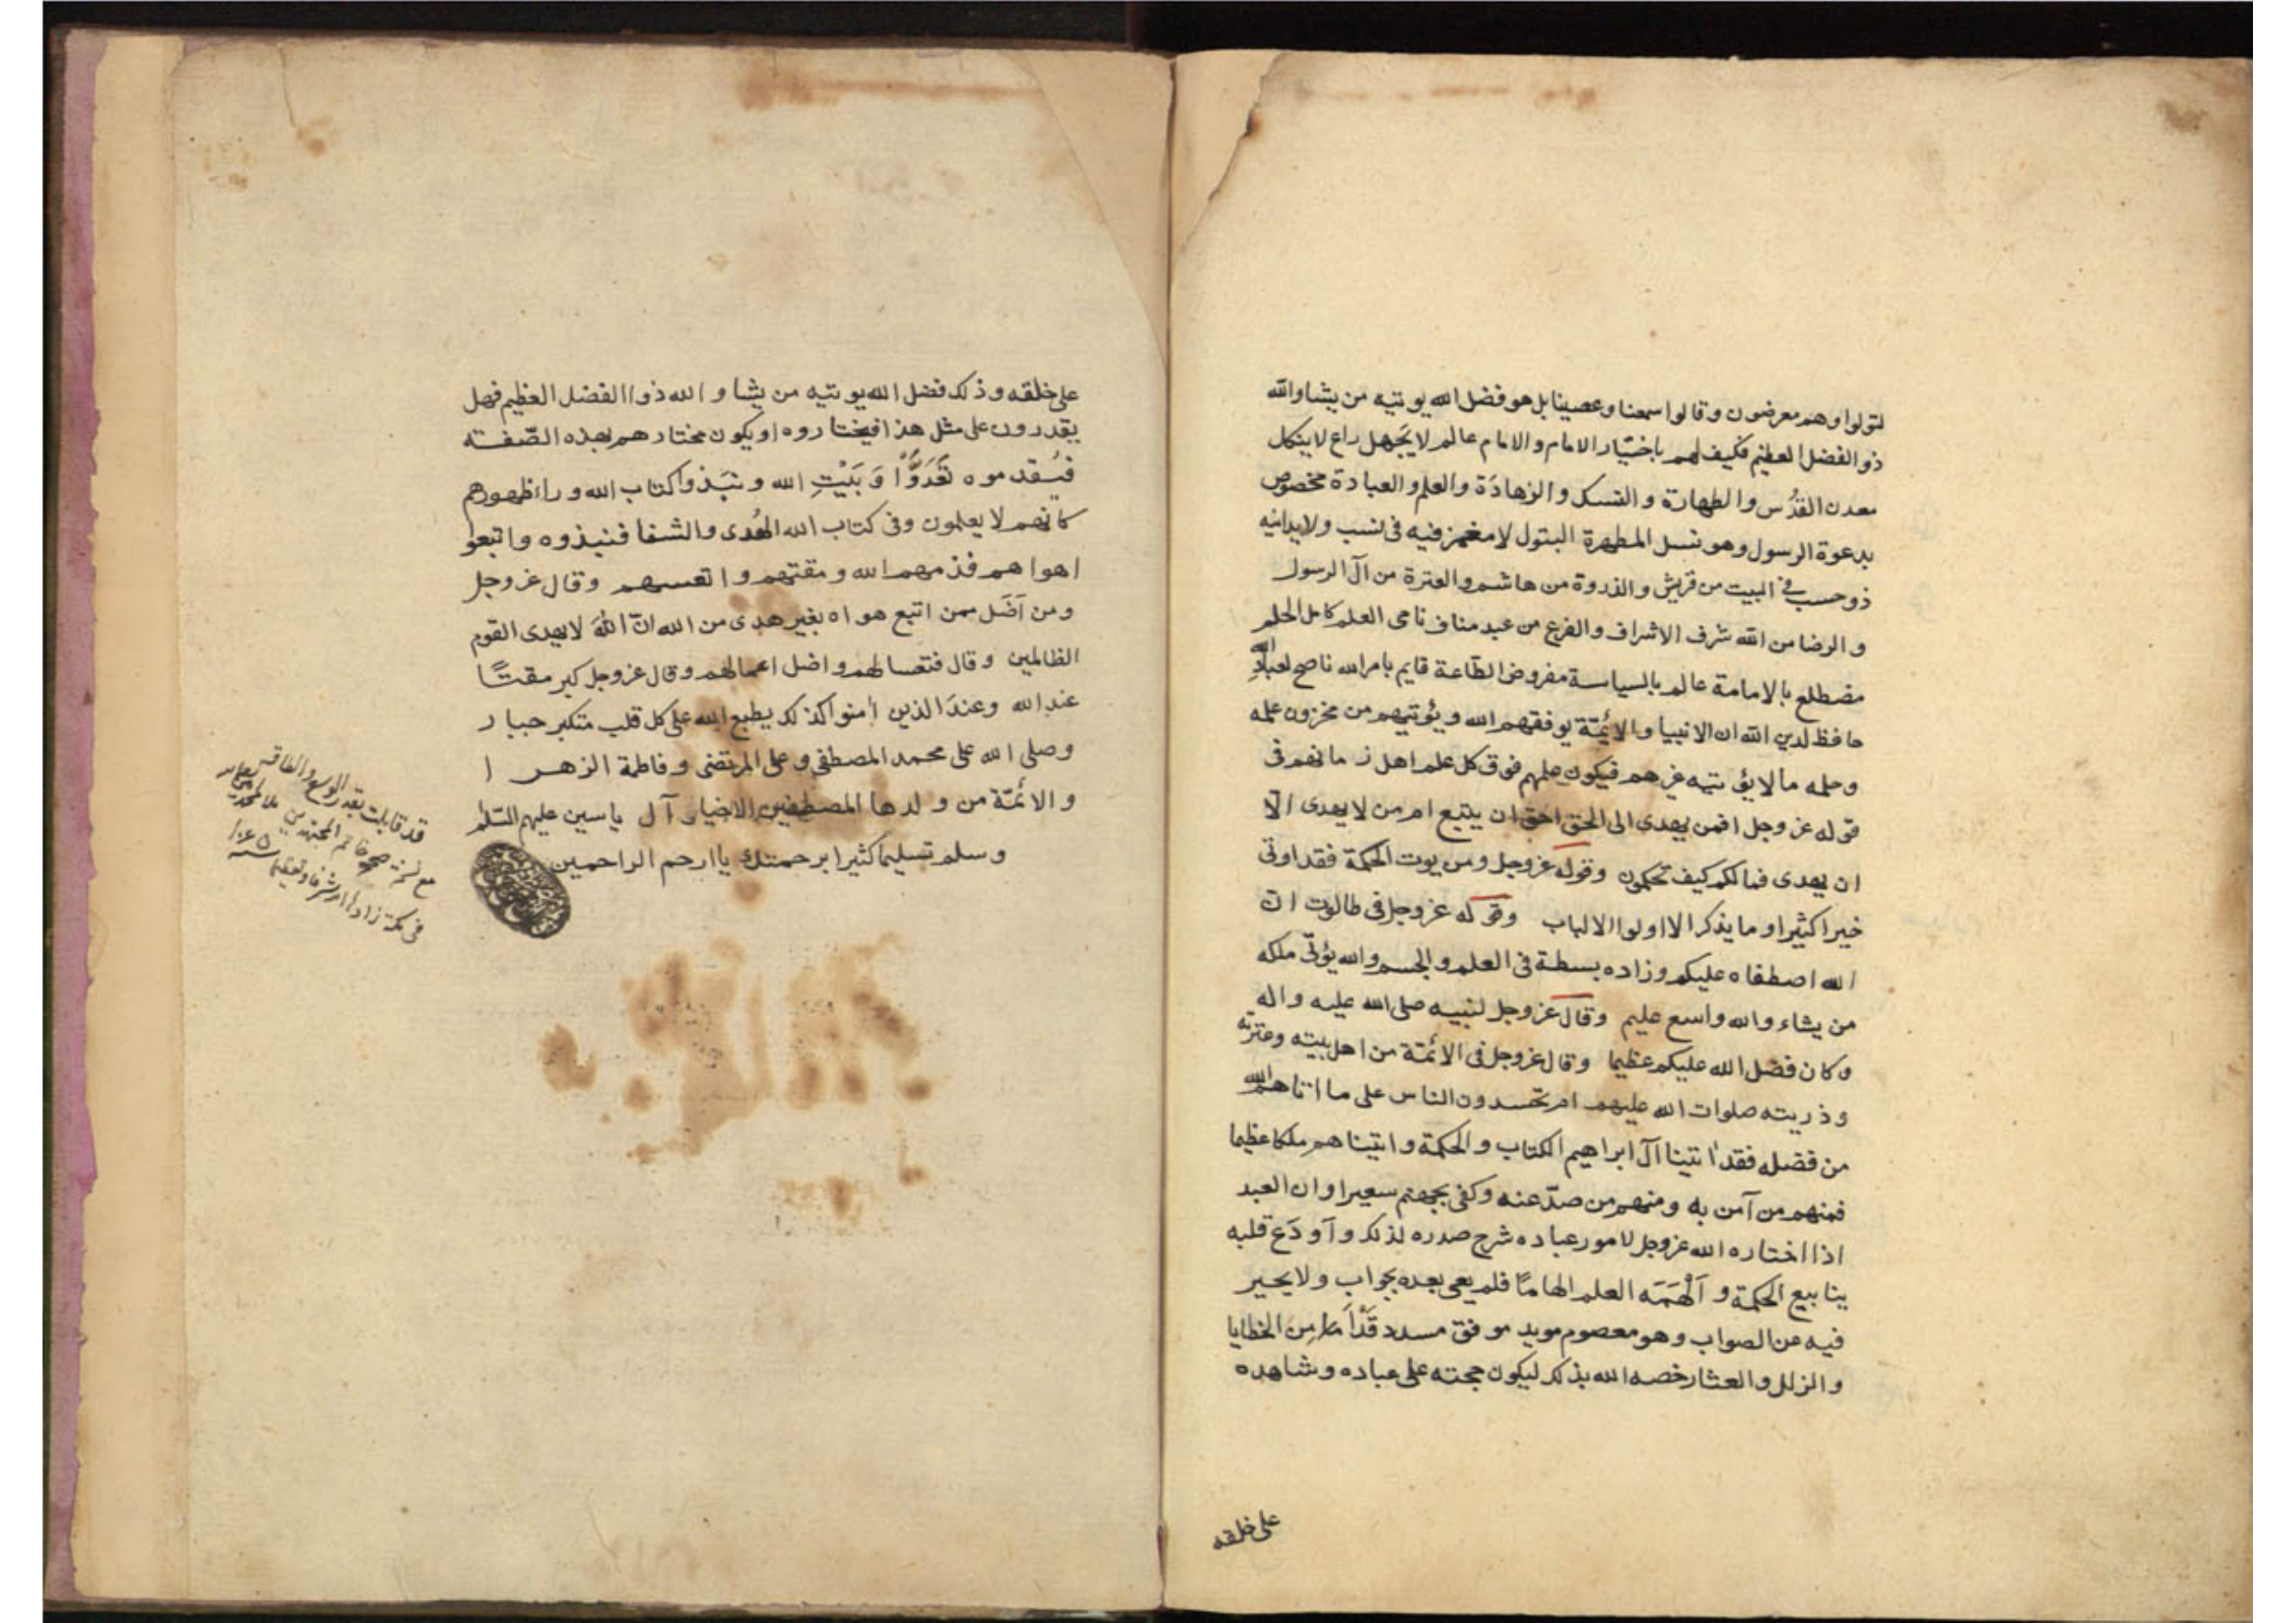 لتولوا وهم معرضون وقالوا سمعنا وعصينا بل هو فضل الله يوتيه من يشا والله
ذو الفضل العظيم فكيف لهم باختيار الامام والامام عالم لا يَجهل راع لا ينكل
معدن القدُس والطهارة والنسك والزهادَة والعلم والعبادة مخصوص
بدعوة الرسول وهو نسل المطهرة البتول لا مغمز فيه فى نسب ولا يدانيه
ذو حسب فى البيت من قريش والذروة من هاشم والعترة من آل الرسول
والرضا من الله شرف الاشراف والفرع من عبد مناف نامى العلم كامل الحلم
مضطلع بالامامة عالم بالسياسة مفروض الطاعة قايم بامر الله ناصح لعباد الله
حافظ لدين الله ان الانبيا والائمّة يوفقهم الله ويؤتيهم من مخزون علمه
وحلمه ما لا يؤتيه غيرهم فيكون علمهم فوق كل علم اهل زمانهم فى
قوله عز وجل افمن يهدى الى الحق احق ان يتبع ام من لا يهدى الّا
ان يهدى فما لكم كيف تحكمون وقوله عز وجل ومن يوت الحكمة فقد اوتى
خيرا كثيرا وما يذكر الا اولوا الالباب وقوله عز وجل فى طالوت ان
الله اصطفاه عليكم وزاده بسطة فى العلم والجسم والله يؤتى ملكه
من يشاء والله واسع عليم وقال عز وجل لنبيه صلى الله عليه واله
وكان فضل الله عليكم عظيما وقال عز وجل فى الائمّة من اهل بيته وعترته
وذريته صلوات الله عليهم ام تحسدون الناس على ما اتاهم الله
من فضله فقد اتينا آل ابراهيم الكتاب والحكمة واتيناهم ملكا عظيما
فمنهم من آمن به ومنهم من صدّ عنه وكفى بجهنم سعيرا وان العبد
اذا اختاره الله عز وجل لامور عباده شرح صدره لذلك وآودَع قلبه
ينابيع الحكمة و اَلْهَمَه العلم الهامًا فلم يعى بعده بجواب ولا يحير
فيه عن الصواب وهو معصوم مويد موفق مسدد قد امن من الخطايا
والزلل والعثار خصه الله بذلك ليكون حجته على عباده وشاهده
على خلقه
على خلقه وذلك فضل الله يوتيه من يشا والله ذوا الفضل العظيم فهل
يقدرون على مثل هذا فيختاروه او يكون مختارهم بهذه الصّفته
فيُقدموه تَعَدَّوْا وَ بَيْتِ الله ونبَذوا كتاب الله وراء ظهورهم
كانهم لا يعلمون وفى كتاب الله الهُدى والشفا فنبذوه واتبعو
اهواهم فذمهم الله ومقتهم واتعسهم وقال عز وجل
ومن آضَل ممن اتبع هواه بغير هدى من الله انّ اللهَ لا يهدى القوم
الظالمين وقال فتعسا لهم واضل اعمالهم وقال عز وجل كبر مقتًا
عند الله وعندَ الذين امنوا كذلك يطبع الله على كل قلب متكبر جبار
وصلى الله على محمد المصطفى وعلى المرتضى وفاطمة الزهرا
والائمّة من ولدها المصطفين الاخيار آل ياسين عليهم السّلم
وسلم تسليما كثيرا برحمتك ياارحم الراحمين
قد قابلت بقدر الوسع والطاقة
مع نسخة صححها خاتم المجتهدين
فى مكة زادها الله شرفا وتعظيما